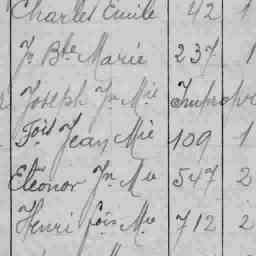 Charles Emile 42 1
Jn Bte Marie 237 1
Joseph Jn Mie Improvi
Fois Jean Mie 109 1
Eléonor Jn Mie 547 2
Henri fois Mie 712 2